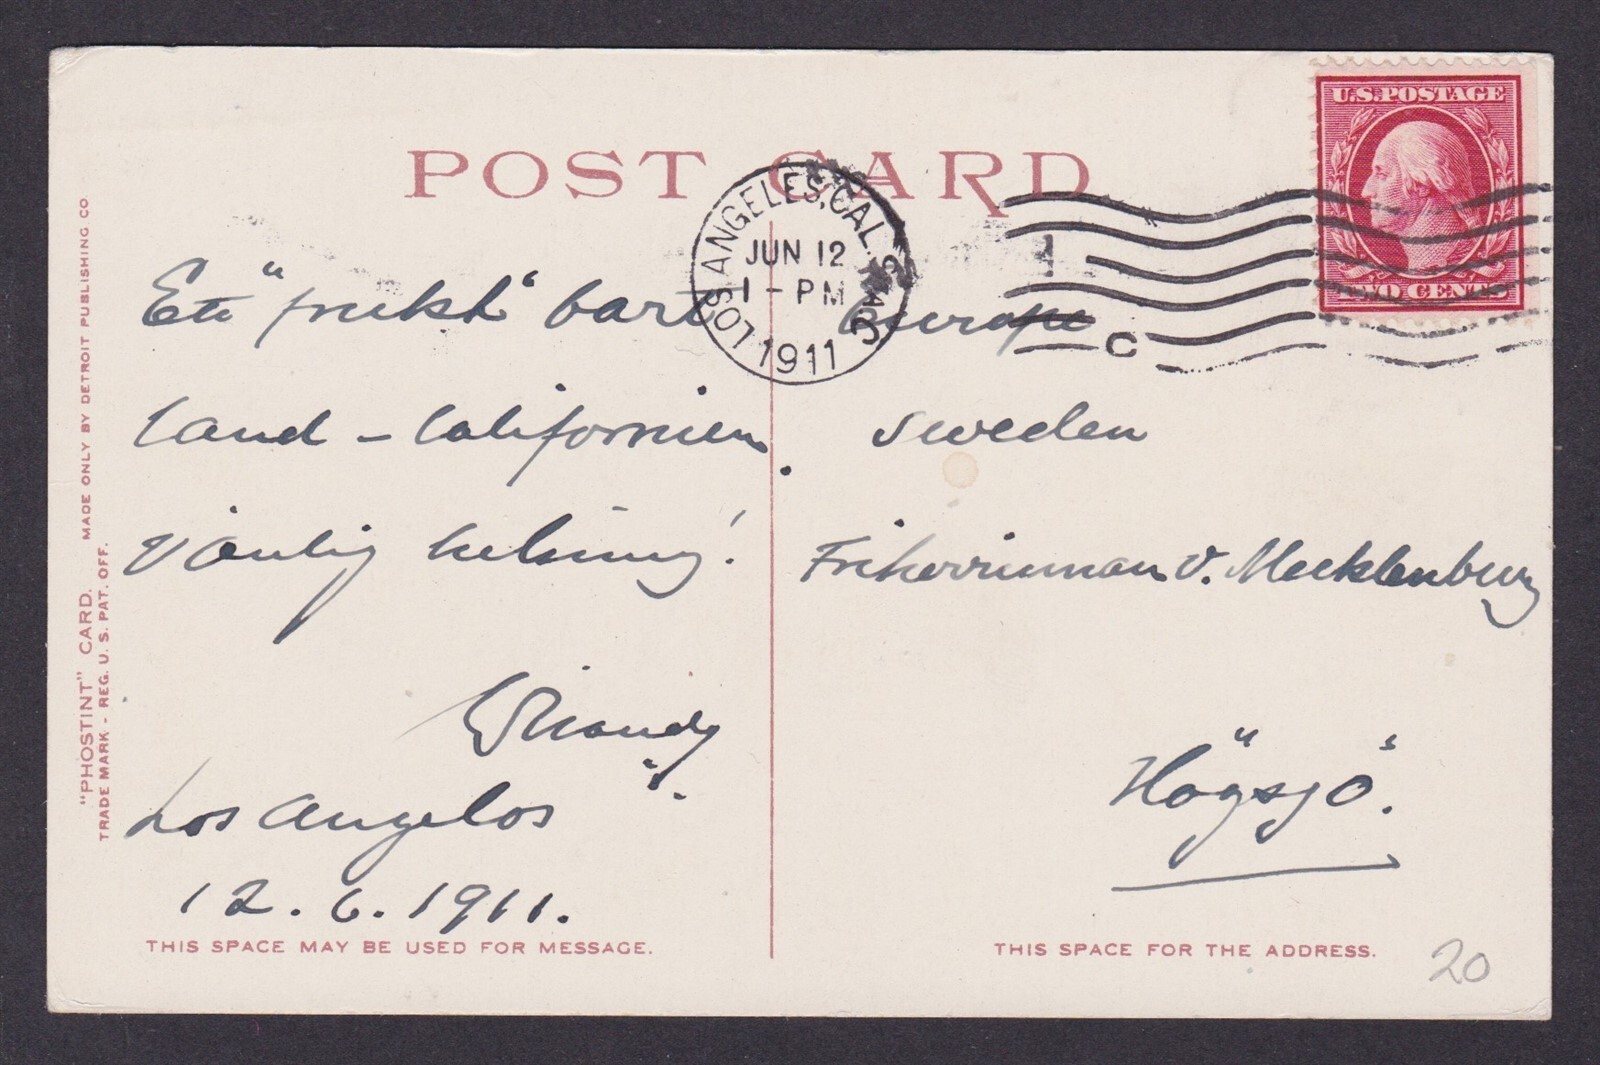 POST CARD
U.S. POSTAGE
TWO CENTS
LOS ANGELES, CAL.
JUN 12
1 - PM
1911
C
Ett "frukt" bart
land - Californien.
Vänlig helsning!
Los Angelos
12.6.1911.
THIS SPACE MAY BE USED FOR MESSAGE.
Europe
Sweden
Friherrinnan v. Mecklenburg
"Högsjö".
THIS SPACE FOR THE ADDRESS.
20
"PHOSTINT" CARD. MADE ONLY BY DETROIT PUBLISHING CO.
TRADE MARK - REG. U. S. PAT. OFF.